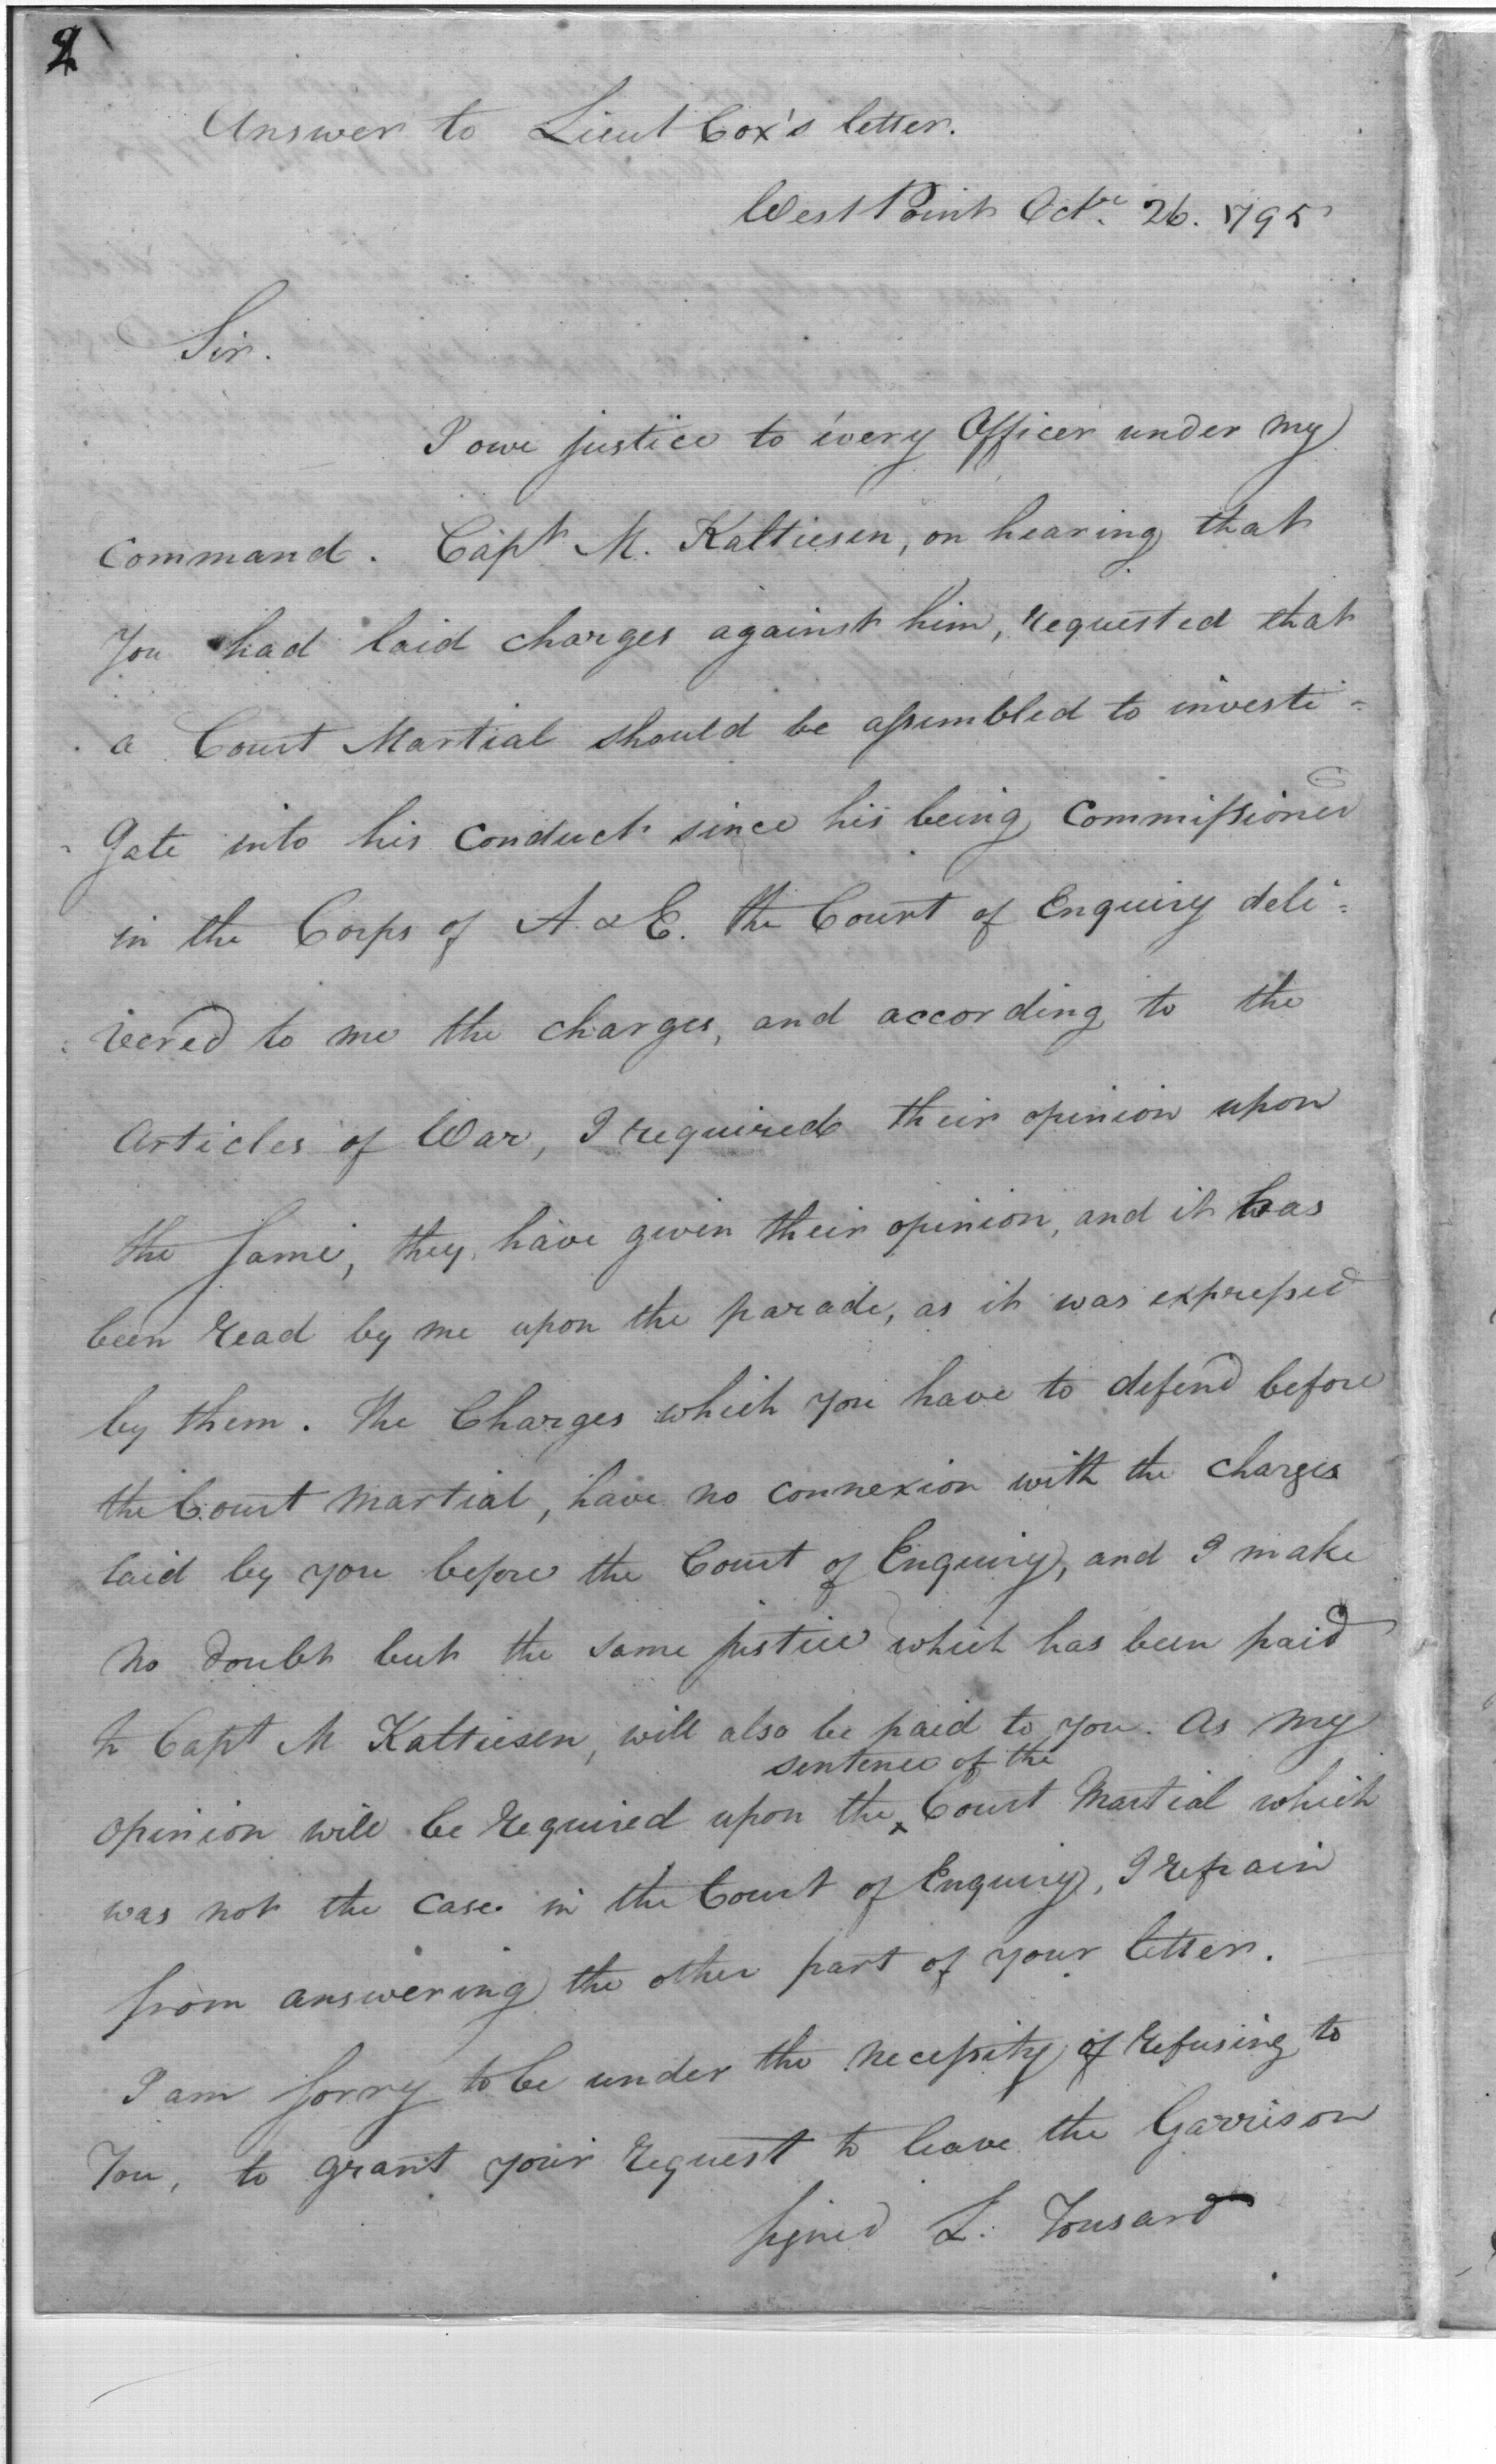 2
Answer to Lieut Cox's letter.
West Point Octre 26. 1795
Sir.
I owe justice to every Officer under my
Command. Capt M. Kaltiesen, on hearing that
You had laid charges against him, requested that
a Court Martial should be assembled to investi=
Gate into his Conduct since his being Commissioned
in the Corps of A. & E. the Court of Enquiry deli=
vered to me the charges, and according to the
Articles of War, I required their opinion upon
the Same, they have given their opinion, and it has
been read by me upon the parade, as it was expressed
by them. The Charges which you have to defend before
the Court Martial, have no connexion with the charges
laid by you before the Court of Enquiry, and I make
no doubt but the same justice which has been paid
to Capt M Kaltiesen, will also be paid to you. As my
sentence of the
opinion will be required upon the Court Martial which
was not the case in the Court of Enquiry, I refrain
from answering the other part of your letter.
I am Sorry to be under the necessity of refusing to
You, to grant your request to leave the Garrison
Signed L. Tousard